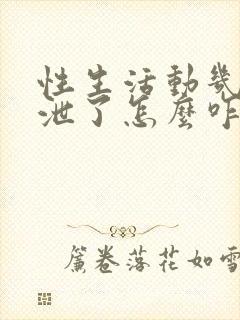 性生活動幾
泄了怎麼咋
簾卷落花如雪